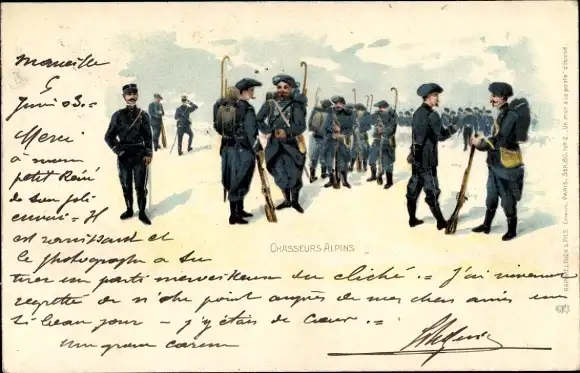 Marseille
6
Juin 03 =
Merci
à mon
petit René
de son joli
envoi = Il
est ravissant et
le photographe a su
tirer un parti merveilleux du cliché . = J'ai vivement
regretté de n'être point auprès de mes chers amis un
si beau jour – j'y étais de cœur . =
Un gros
CHASSEURS ALPINS
RAPHAEL TUCK & FILS PARIS. SÉR. 80. Nº 2. "Un mot à la poste"